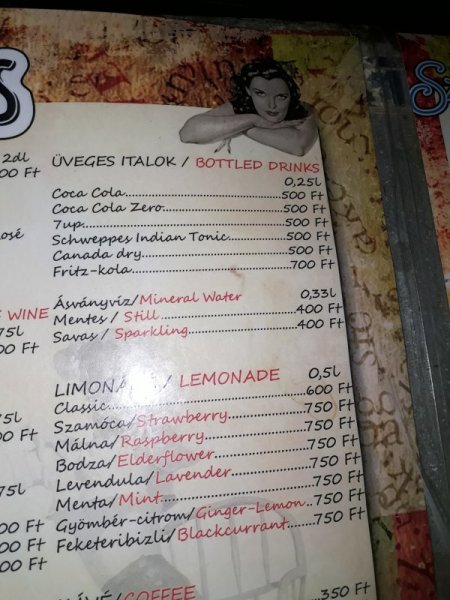 2dl
00 Ft
osé
E WINE
75l
00 Ft
75l
0 Ft
75l
00 Ft
00 Ft
0 Ft
ÜVEGES ITALOK / BOTTLED DRINKS
0,25l
Coca Cola..............500 Ft
Coca Cola Zero..............500 Ft
7up..............500 Ft
Schweppes Indian Tonic..............500 Ft
Canada dry..............500 Ft
Fritz-kola..............700 Ft
Ásványvíz/Mineral Water 0,33l
Mentes / Still..............400 Ft
Savas / Sparkling..............400 Ft
/ LEMONADE 0,5l
Classic..............600 Ft
Szamóca/Strawberry..............750 Ft
Málna/Raspberry..............750 Ft
Bodza/Elderflower..............750 Ft
Levendula/Lavender..............750 Ft
Menta/Mint..............750 Ft
Gyömbér-citrom/Ginger-Lemon..750 Ft
Feketeribizli/Blackcurrant.......750 Ft
/COFFEE 350 Ft